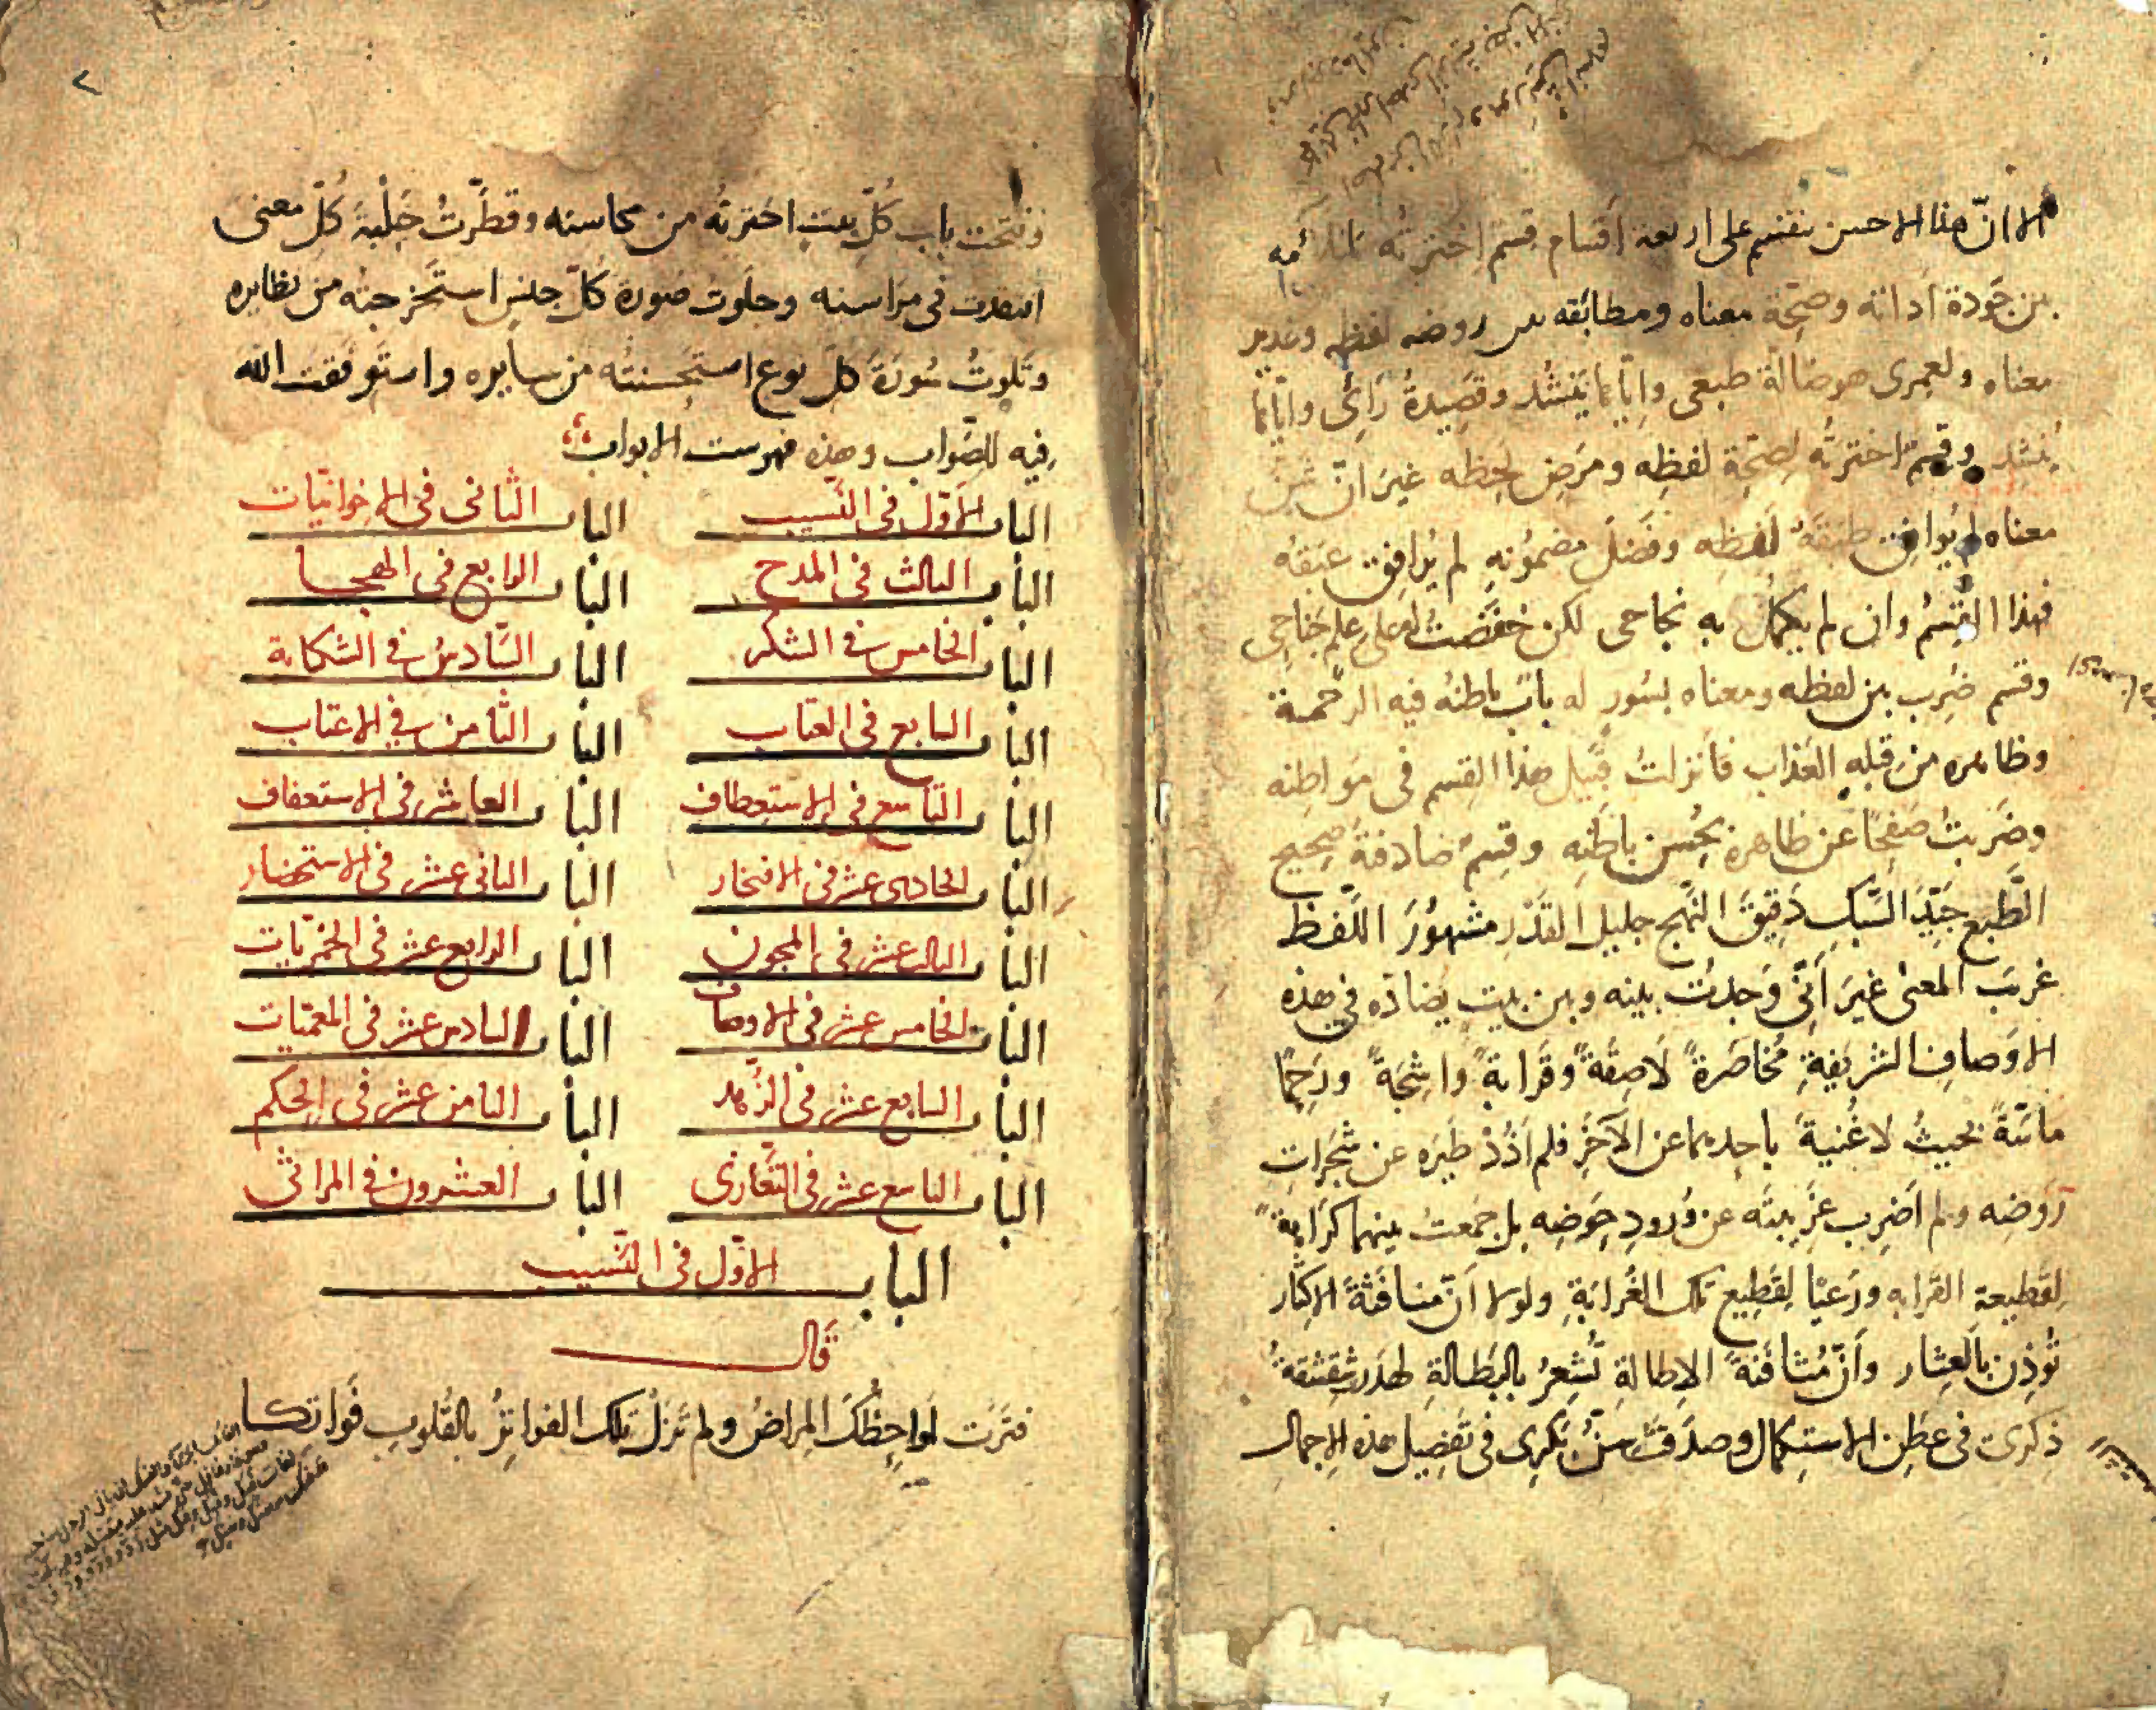 الا انّ هذا الاحسن ينقسم على اربعة اقسام قسم اخترته
من جَودة اداته وصحّة معناه ومطابقه روضه لفظه وغدير
معناه ولعمرى هو ضالة طبعى وايّاها ينشد وقصيدة رائى وايّاها
ينشد وقسم اخترته لصحّة لفظه ومرض لحظه غير انّ شنّ
معناه لم يوافق طبقة لفظه وفضل مضمونه لم يرافق عبقه
فهذا القسم وان لم يكمل به نجاحى لكن خفضت له على علم جناحى
وقسم ضرب بين لفظه ومعناه بسور له باب باطنه فيه الرحمة
وظاهره من قبله العذاب فانزلت قبيل هذا القسم فى مواطنه
وضربت صفحًا عن ظاهره بحسن باطنه وقسم صادفته صحيح
الطّبع جيّد السّبك دقيق النّهج جليل القدر مشهور اللّفظ
غريب المعنى غير انّى وجدت بينه وبين بيت يضادّه في هذه
الاوصاف الشريفة مخاصرة لاصقة وقرابة واشجة ورحمًا
ماسّة بحيث لا غنية باحدهما عن الآخر فلم اذد طيره عن شجرات
روضه ولم اضرب غريبته عن ورود حوضه بل جمعت بينهما كرابة
لقطيعة القرابه ورعيًا لقطيع تلك الغرابة ولولا انّ منافثة الاكثار
تُوذن بالعثار وانّ مثافنة الاطالة تُشعر بالبطالة لهدرت شقشقة
ذكرى فى عطن الاستكمال وصدقت سنّ بكرى فى تفصيل هذه الاجمال
وفتحت باب كلّ بيت اخترته من محاسنه وقطّرت حلبة كلّ معنى
انتقدت فى مراسنه وجلوت صورة كلّ جنس استخرجته من نظايره
وتلوت سورة كلّ نوع استحسنته من سايره واستوفقت الله
فيه للصّواب وهذه فهرست الابواب
الباب الاوّل فى النّسيب الباب الثّانى فى الاخوانيّات
الباب الثالث فى المدح الباب الرابع فى الهجا
الباب الخامس فى الشكر الباب السّادس فى الشكاية
الباب السابع فى العتاب الباب الثّامن في الاعتاب
الباب التاسع فى الاستعطاف الباب العاشر فى الاستعفاف
الباب الحادى عشر فى الافتخار الباب الثانى عشر فى الاستحضار
الباب الثالث عشر فى المجون الباب الرابع عشر فى الخمريّات
الباب الخامس عشر فى الاوصاف الباب السادس عشر فى المعمّيات
الباب السابع عشر فى الزّهد الباب الثامن عشر فى الحكم
الباب التاسع عشر فى التّعازى الباب العشرون فى المراثى
الباب الاوّل فى النّسيب
قال
فترت لواحظك المراض ولم تزل تلك الفواتر بالقلوب فواتكا